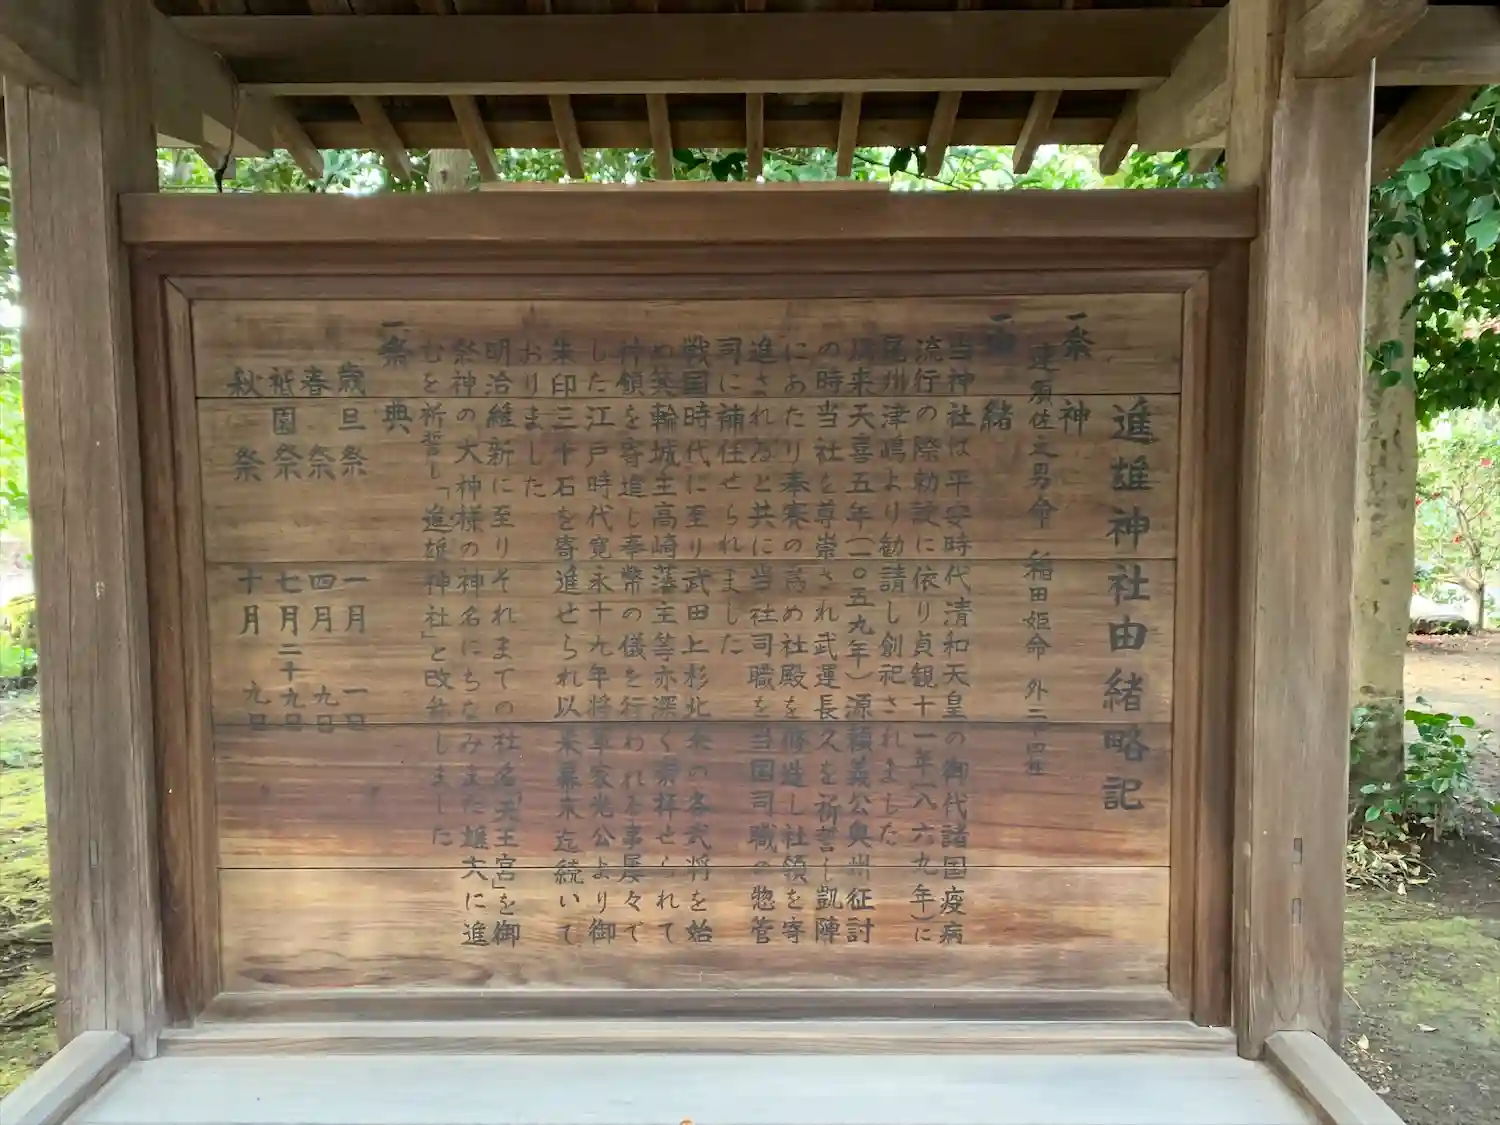 進雄神社由緒略記
一祭神
速須佐之男命　稲田姫命　外二十四柱
一由緒
当神社は平安時代清和天皇の御代諸国疫病
流行の際勅諚に依り貞観十一年(八六九年)に
尾州津嶋より勧請し創祀されました
以来天喜五年(一〇五九年)源頼義公奥州征討
の時当社を尊崇され武運長久を祈誓し凱陣
にあたり奉賽の為め社殿を修造し社領を寄
進され為と共に当社司職を当国司職の惣管
司に補任せられました
戦国時代に至り武田上杉北条の各武将を始
め箕輪城主高崎藩主等亦深く崇拝せられて
神領を寄進し奉幣の儀を行われる事屡々で
した江戸時代寛永十九年将軍家光公より御
朱印三十石を寄進せられ以来幕末迄続いて
おりました
明治維新に至りそれまでの社名「天王宮」を御
祭神の大神様の神名にちなみまた雄六に進
むを祈誓し「進雄神社」と改称しました
一祭典
歳旦祭　一月一日
春祭　四月九日
祗園祭　七月二十九日
秋祭　十月九日